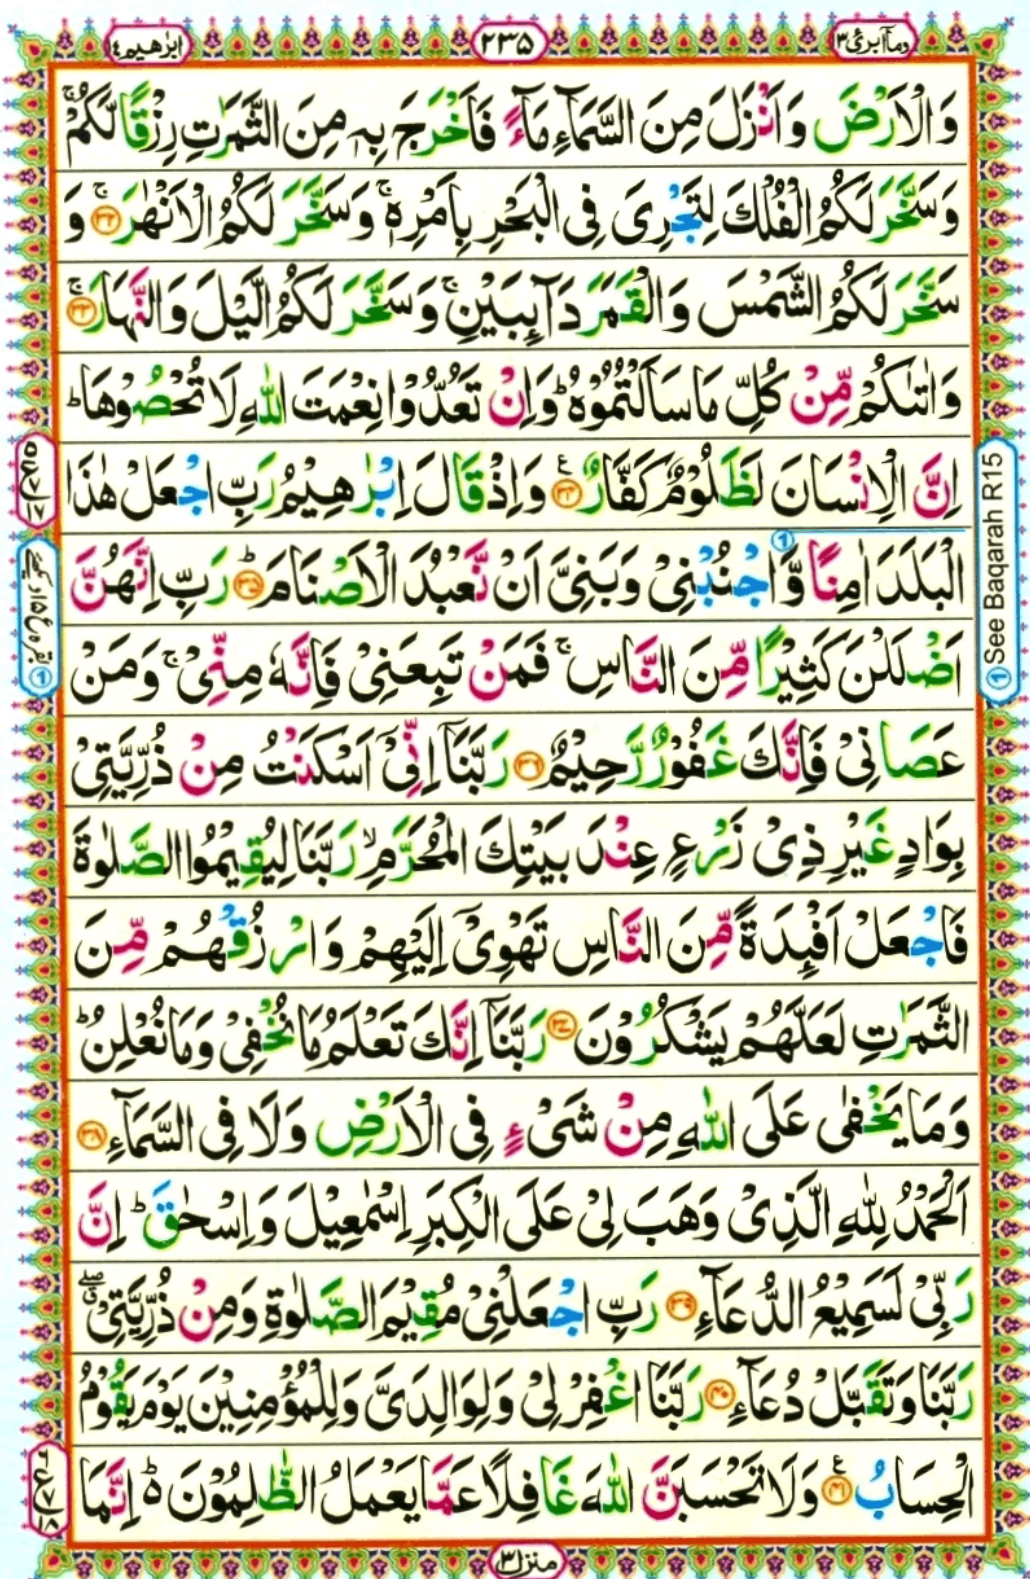 وماۤ ابرئ ١٣
٢٣٥
ابرٰهيم ١٤
وَالْاَرْضَ وَاَنْزَلَ مِنَ السَّمَآءِ مَآءً فَاَخْرَجَ بِهٖ مِنَ الثَّمَرٰتِ رِزْقًا لَّكُمْ ۚ
وَسَخَّرَ لَكُمُ الْفُلْكَ لِتَجْرِیَ فِی الْبَحْرِ بِاَمْرِهٖ ۚ وَسَخَّرَ لَكُمُ الْاَنْهٰرَ ۚ ﴿۳۲﴾ وَ
سَخَّرَ لَكُمُ الشَّمْسَ وَالْقَمَرَ دَآئِبَيْنِ ۚ وَسَخَّرَ لَكُمُ الَّيْلَ وَالنَّهَارَ ۚ ﴿۳۳﴾
وَاٰتٰىكُمْ مِّنْ كُلِّ مَا سَاَلْتُمُوْهُ ؕ وَاِنْ تَعُدُّوْا نِعْمَتَ اللّٰهِ لَا تُحْصُوْهَا ؕ
اِنَّ الْاِنْسَانَ لَظَلُوْمٌ كَفَّارٌ ﴿۳۴﴾ ع وَاِذْ قَالَ اِبْرٰهِيْمُ رَبِّ اجْعَلْ هٰذَا
الْبَلَدَ اٰمِنًا وَّاجْنُبْنِیْ وَبَنِیَّ اَنْ نَّعْبُدَ الْاَصْنَامَ ؕ ﴿۳۵﴾ رَبِّ اِنَّهُنَّ
اَضْلَلْنَ كَثِيْرًا مِّنَ النَّاسِ ۚ فَمَنْ تَبِعَنِیْ فَاِنَّهٗ مِنِّیْ ۚ وَمَنْ
عَصَانِیْ فَاِنَّكَ غَفُوْرٌ رَّحِيْمٌ ﴿۳۶﴾ رَبَّنَاۤ اِنِّیْۤ اَسْكَنْتُ مِنْ ذُرِّيَّتِیْ
بِوَادٍ غَيْرِ ذِیْ زَرْعٍ عِنْدَ بَيْتِكَ الْمُحَرَّمِ ۙ رَبَّنَا لِيُقِيْمُوا الصَّلٰوةَ
فَاجْعَلْ اَفْئِدَةً مِّنَ النَّاسِ تَهْوِیْۤ اِلَيْهِمْ وَارْزُقْهُمْ مِّنَ
الثَّمَرٰتِ لَعَلَّهُمْ يَشْكُرُوْنَ ﴿۳۷﴾ رَبَّنَاۤ اِنَّكَ تَعْلَمُ مَا نُخْفِیْ وَمَا نُعْلِنُ ؕ
وَمَا يَخْفٰی عَلَی اللّٰهِ مِنْ شَیْءٍ فِی الْاَرْضِ وَلَا فِی السَّمَآءِ ﴿۳۸﴾
اَلْحَمْدُ لِلّٰهِ الَّذِیْ وَهَبَ لِیْ عَلَی الْكِبَرِ اِسْمٰعِيْلَ وَاِسْحٰقَ ؕ اِنَّ
رَبِّیْ لَسَمِيْعُ الدُّعَآءِ ﴿۳۹﴾ رَبِّ اجْعَلْنِیْ مُقِيْمَ الصَّلٰوةِ وَمِنْ ذُرِّيَّتِیْ ۖ
رَبَّنَا وَتَقَبَّلْ دُعَآءِ ﴿۴۰﴾ رَبَّنَا اغْفِرْ لِیْ وَلِوَالِدَیَّ وَلِلْمُؤْمِنِيْنَ يَوْمَ يَقُوْمُ
الْحِسَابُ ﴿۴۱﴾ ع وَلَا تَحْسَبَنَّ اللّٰهَ غَافِلًا عَمَّا يَعْمَلُ الظّٰلِمُوْنَ ؕ اِنَّمَا
① See Baqarah R15
منزل ٣